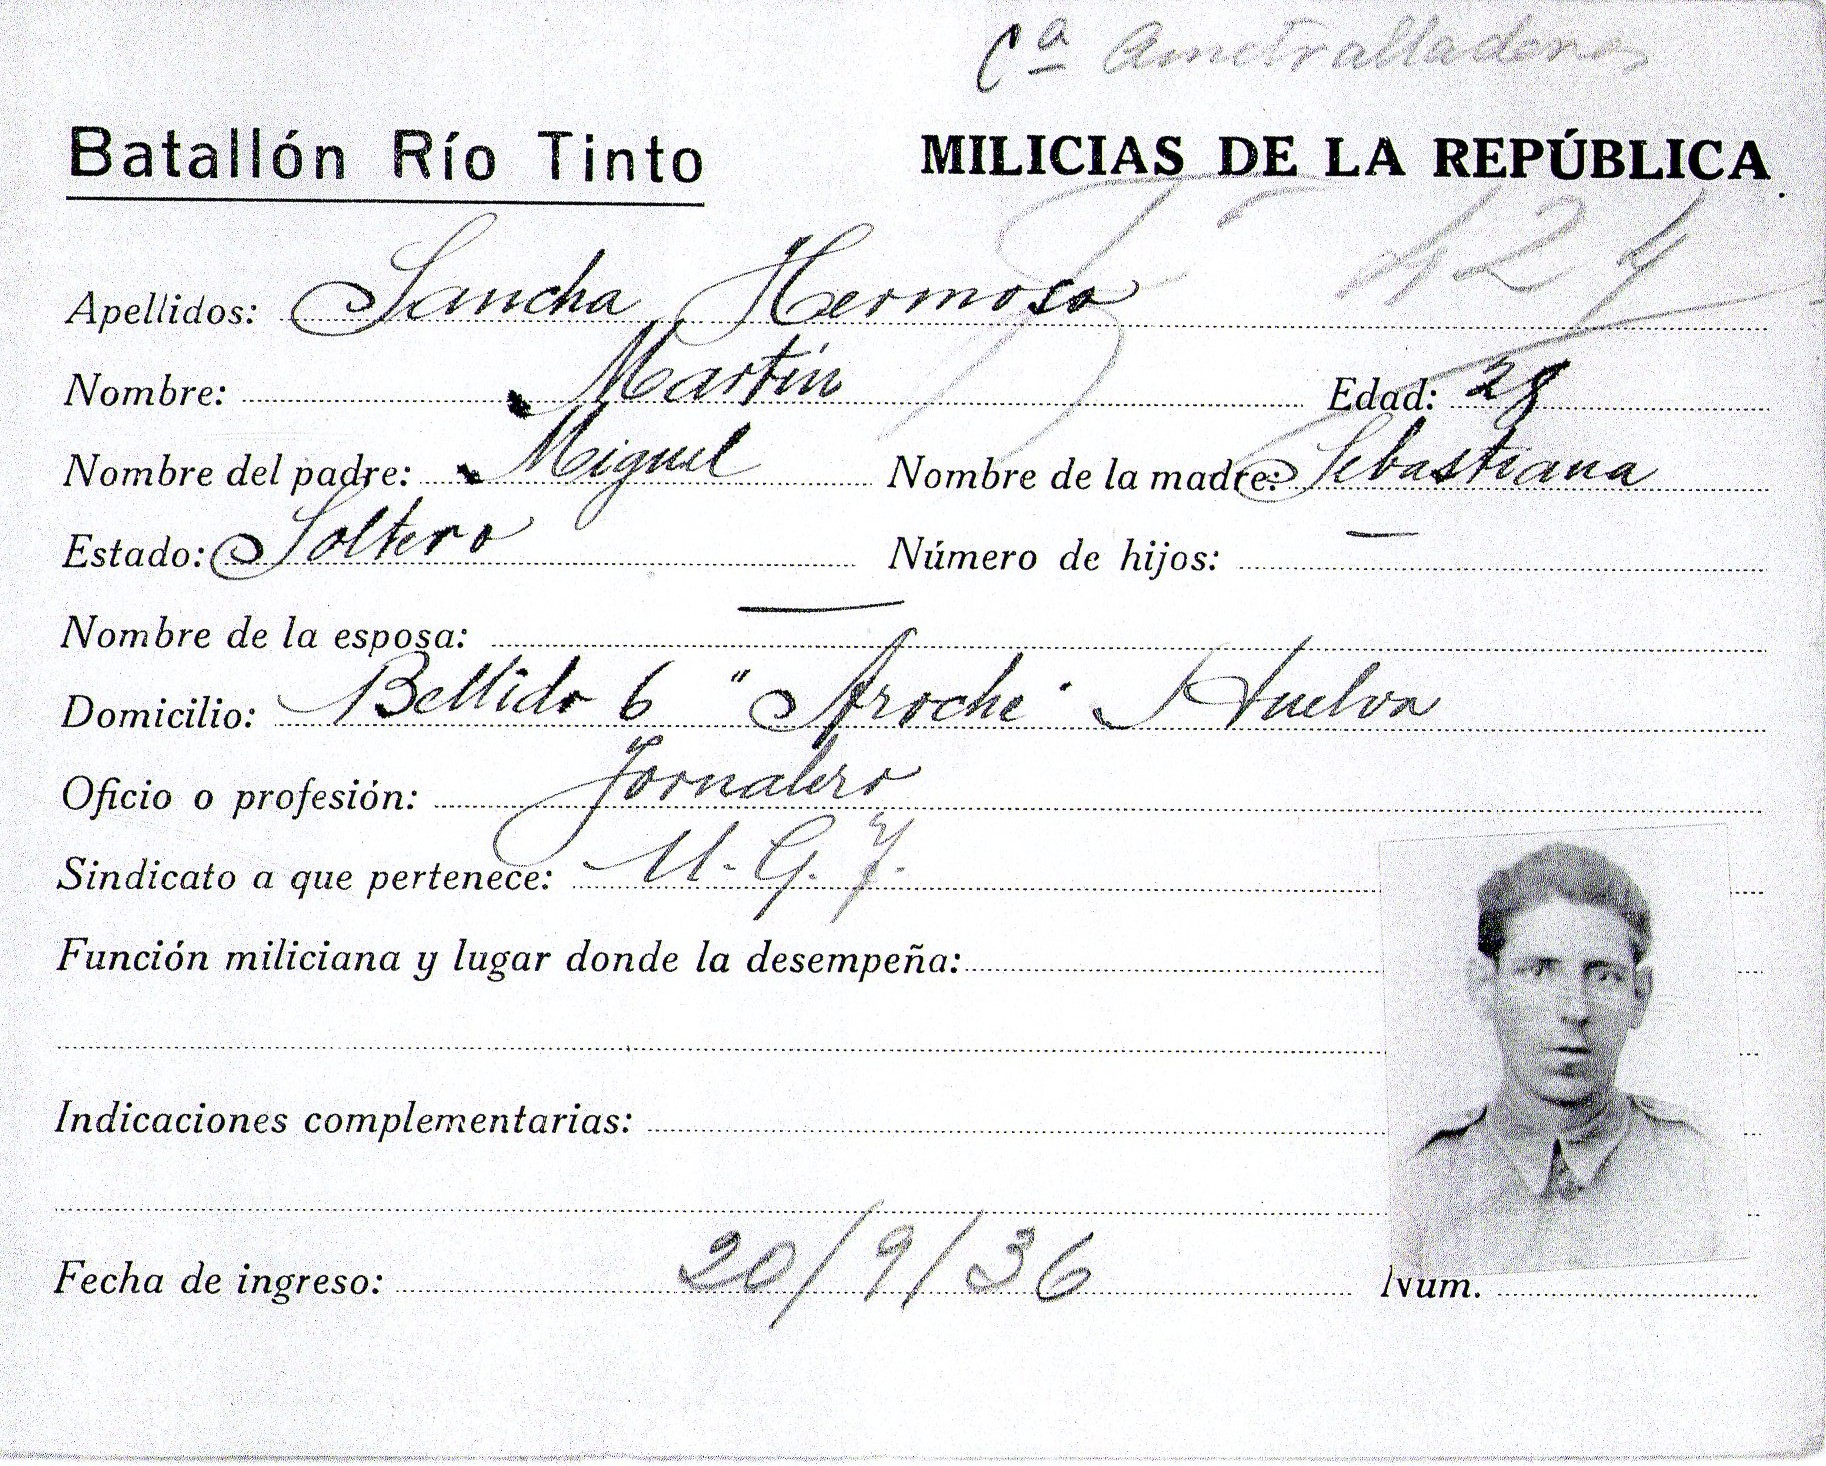 Cª Ametralladoras
Batallón Río Tinto
MILICIAS DE LA REPÚBLICA.
424
Apellidos: Sancha Hermoso
Nombre: Martin Edad: 28
Nombre del padre: Miguel Nombre de la madre: Sebastiana
Estado: Soltero Número de hijos: —
Nombre de la esposa: —
Domicilio: Bellido 6 "Aroche" Huelva
Oficio o profesión: Jornalero
Sindicato a que pertenece: U.G.T.
Función miliciana y lugar donde la desempeña:
Indicaciones complementarias:
Fecha de ingreso: 20/9/36 Num.